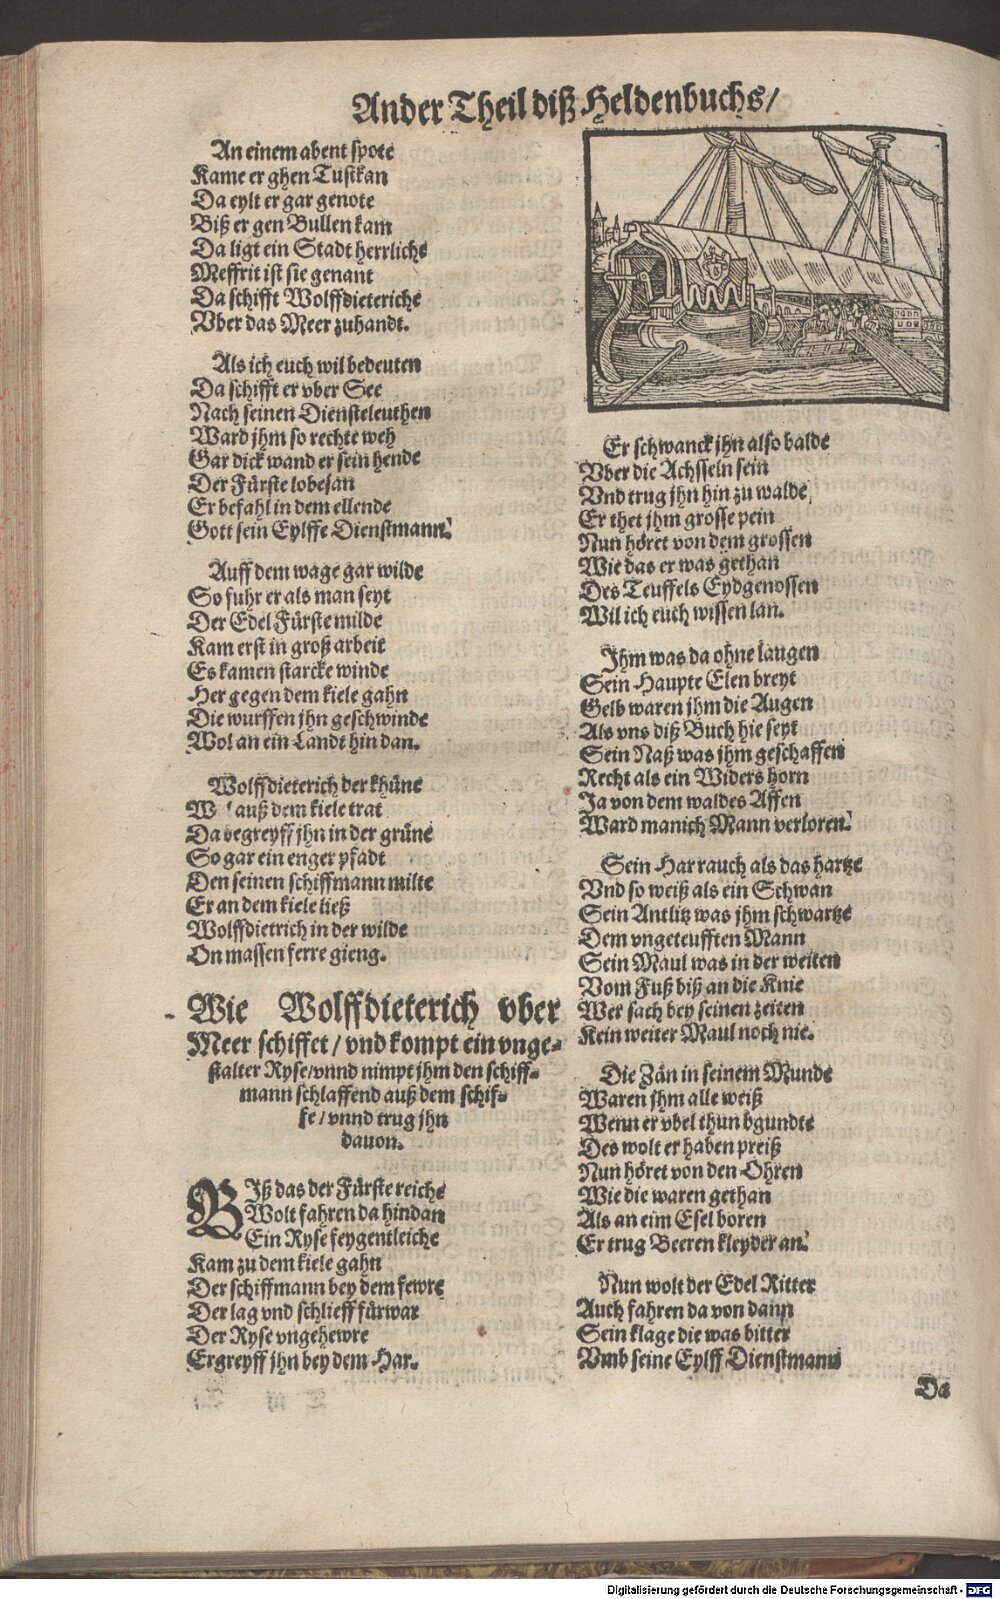 Ander Theil diß Heldenbuchs/
An einem abent spote
Kame er ghen Tustkan
Da eylt er gar genote
Biß er gen Bullen kam
Da ligt ein Stadt herrliche
Meffrit ist sie genant
Da schifft Wolffdieteriche
Vber das Meer zuhandt.
Als ich euch wil bedeuten
Da schifft er vber See
Nach seinen Diensteleuthen
Ward jhm so rechte weh
Gar dick wand er sein hende
Der Fürste lobesan
Er befahl in dem ellende
Gott sein Eylffe Dienstmann.
Auff dem wage gar wilde
So fuhr er als man seyt
Der Edel Fürste milde
Kam erst in groß arbeit
Es kamen starcke winde
Her gegen dem kiele gahn
Die wurffen jhn geschwinde
Wol an ein Landt hin dan.
Wolffdieterich der khüne
W l auß dem kiele trat
Da begreyff jhn in der grüne
So gar ein enger pfadt
Den seinen schiffmann milte
Er an dem kiele ließ
Wolffdietrich in der wilde
On massen ferre gieng.
Wie Wolffdieterich vber
Meer schiffet/ vnd kompt ein vnge-
stalter Ryse/vnnd nimpt jhm den schiff-
mann schlaffend auß dem schif-
fe/ vnnd trug jhn
dauon.
BIß das der Fürste reiche
Wolt fahren da hindan
Ein Ryse feygentleiche
Kam zu dem kiele gahn
Der schiffmann bey dem fewre
Der lag vnd schlieff fürwar
Der Ryse vngehewre
Ergreyff jhn bey dem Har.
Er schwanck jhn also balde
Vber die Achsseln sein
Vnd trug jhn hin zu walde
Er thet jhm grosse pein
Nun höret von dem grossen
Wie das er was gethan
Des Teuffels Eydgenossen
Wil ich euch wissen lan.
Ihm was da ohne laugen
Sein Haupte Elen breyt
Gelb waren jhm die Augen
Als vns diß Buch hie seyt
Sein Naß was jhm geschaffen
Recht als ein Widers horn
Ja von dem waldes Affen
Ward manich Mann verloren.
Sein Har rauch als das hartze
Vnd so weiß als ein Schwan
Sein Antlitz was jhm schwartze
Dem vngeteufften Mann
Sein Maul was in der weiten
Vom Fuß biß an die Knie
Wer sach bey seinen zeiten
Kein weiter Maul noch nie.
Die Zän in seinem Munde
Waren jhm alle weiß
Wenn er vbel thun bgundte
Des wolt er haben preiß
Nun höret von den Ohren
Wie die waren gethan
Als an eim Esel boren
Er trug Beeren kleyder an.
Nun wolt der Edel Ritter
Auch fahren da von dann
Sein klage die was bitter
Vmb seine Eylff Dienstmann
Da
Digitalisierung gefördert durch die Deutsche Forschungsgemeinschaft - DFG